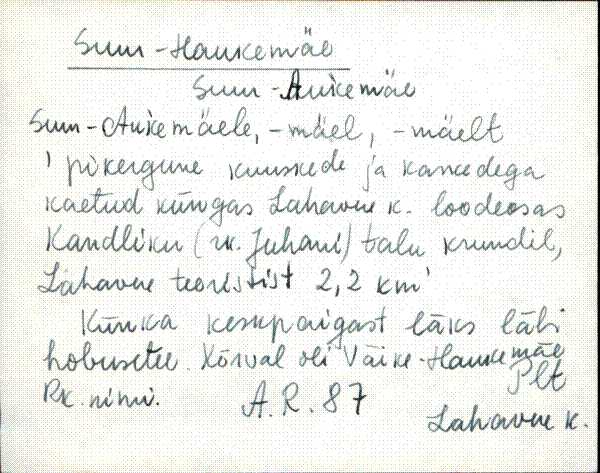 Suur-Haukemäe
Suur-Aukemäe
Suur-Aukemäele, -mäel, -mäelt
' pikergune kuuskede ja kaskedega
kaetud küngas Lahavere k. loodeosas
Kandliku (rk. Juhani) talu krundil,
Lahavere teeristist 2,2 km'
Künka keskpaigast läks läbi
hobusetee. Kõrval oli Väike-Haukemäe
Rk. nimi. A.R. 87 Plt
Lahavere k.